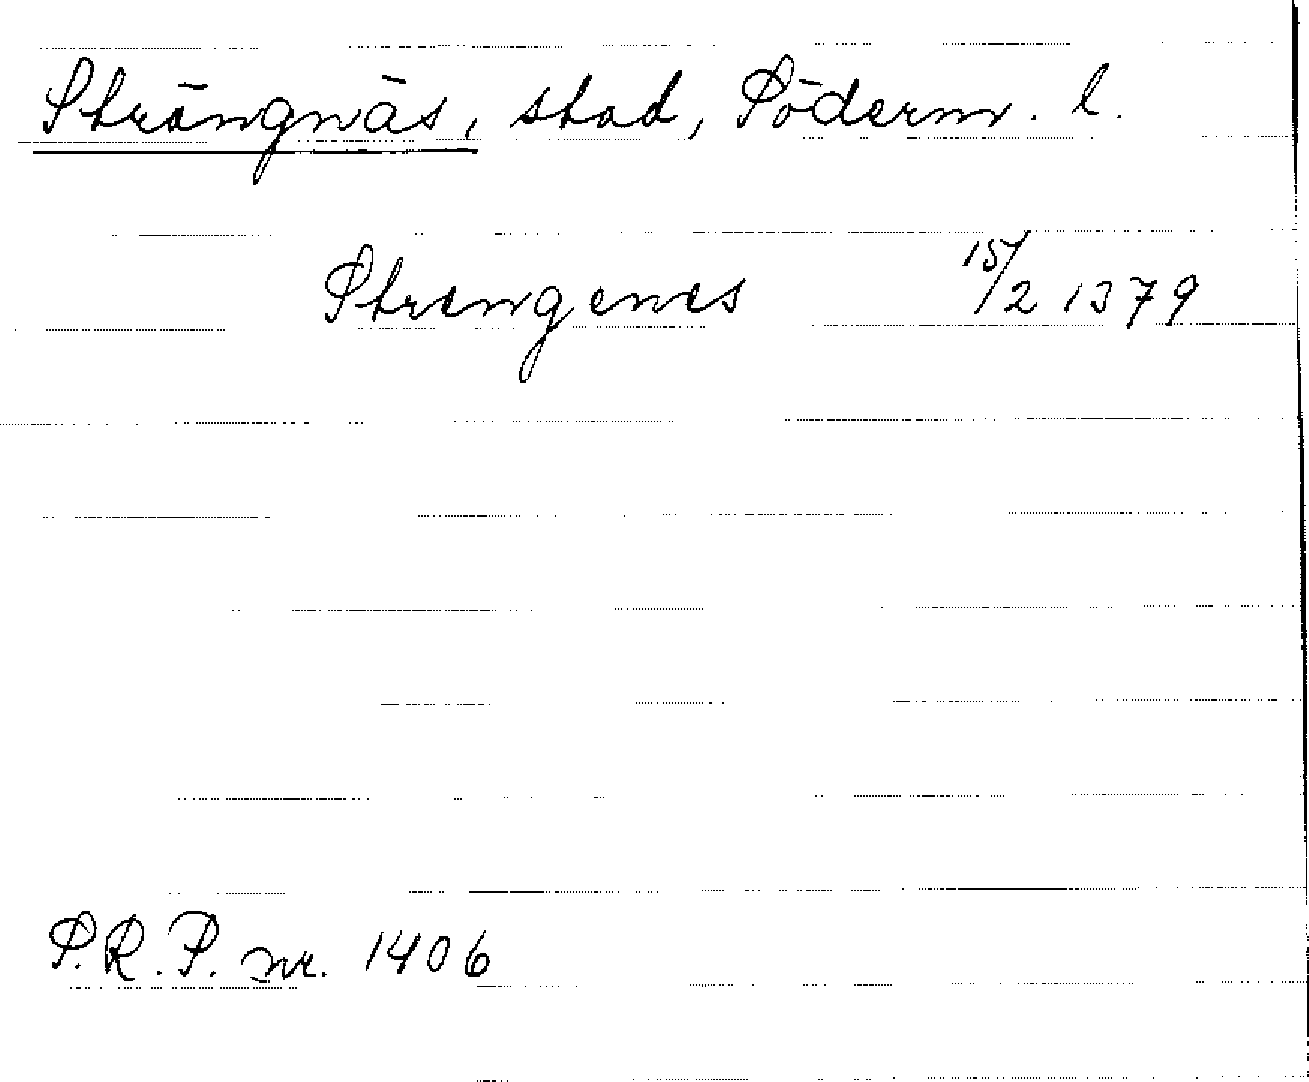 Strängnäs, stad, Söderm. l.
Strengenes 15/2 1379
S.R.P. nr. 1406